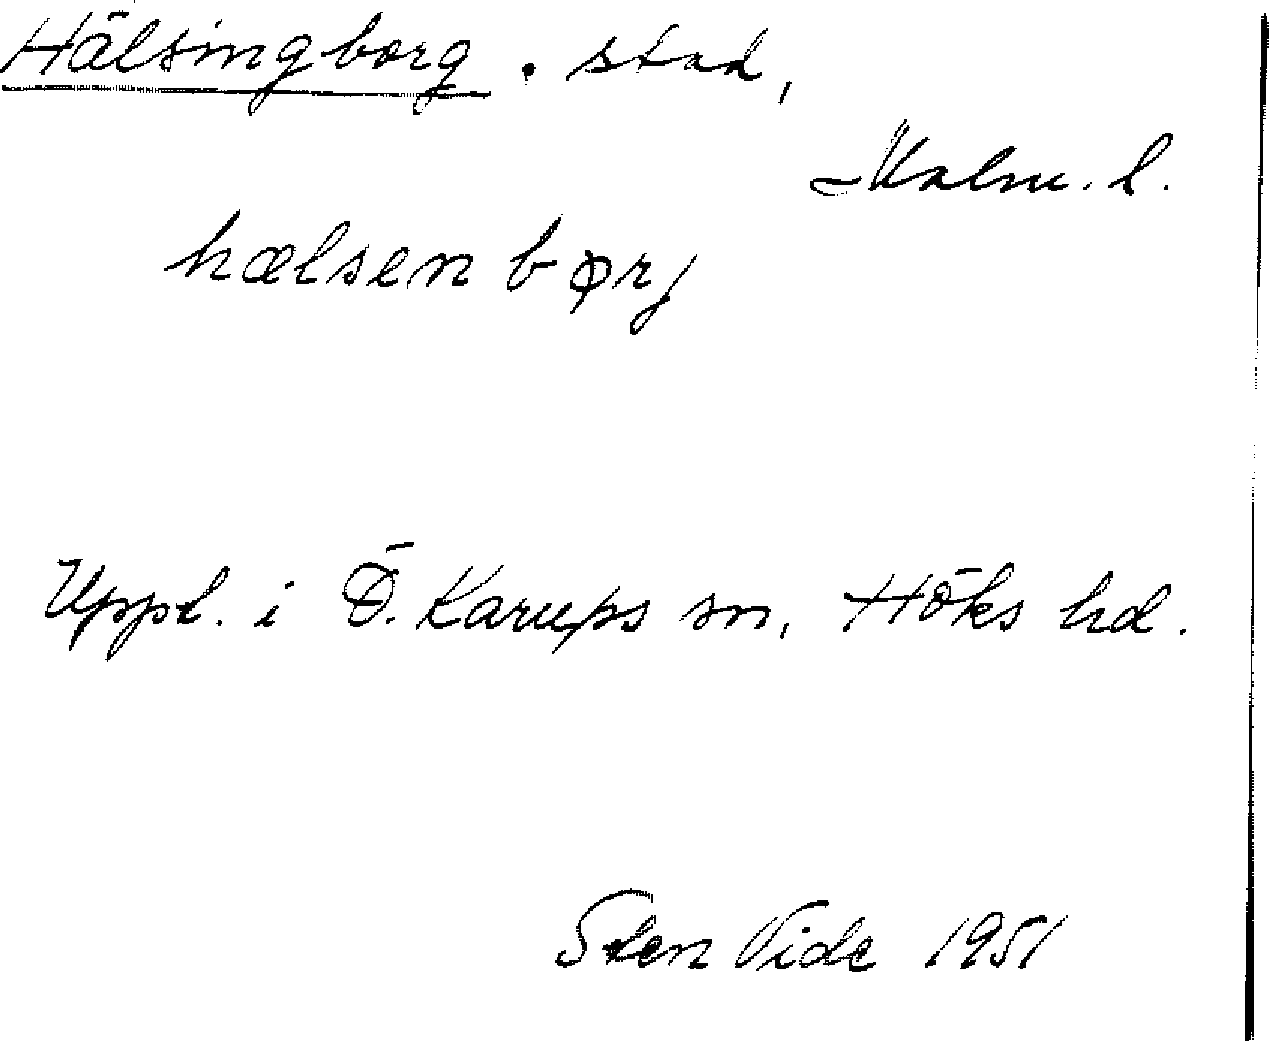 Hälsingborg. stad,
Malm. l.
hælsenbørj
Uppt. i Ö. Karups sn, Höks hd.
Sten Vide 1951